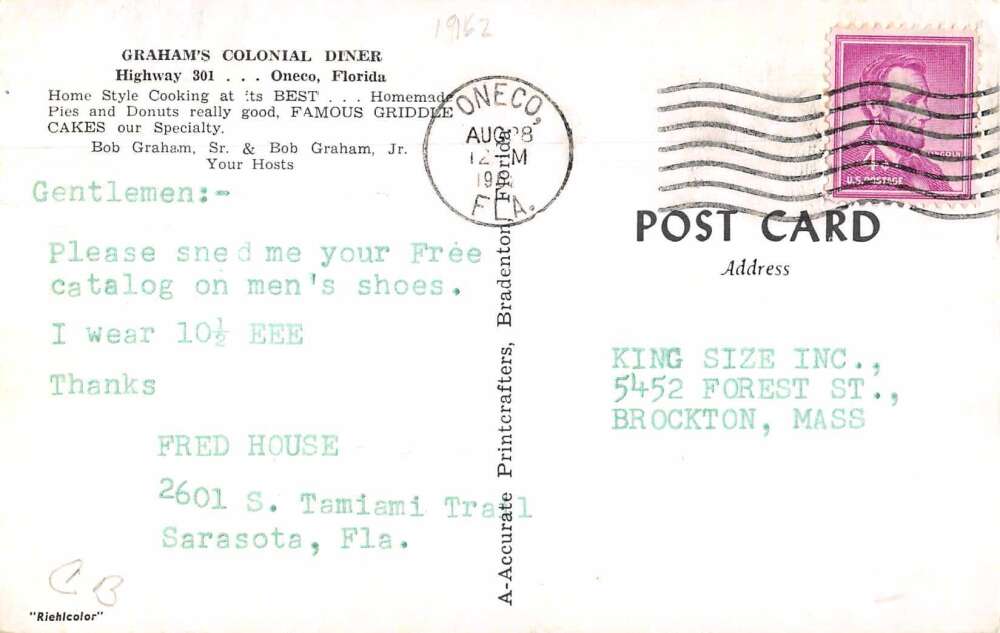 1962
GRAHAM'S COLONIAL DINER
Highway 301 . . . Oneco, Florida
Home Style Cooking at its BEST . . . Homemade
Pies and Donuts really good, FAMOUS GRIDDLE
CAKES our Specialty.
Bob Graham, Sr. & Bob Graham, Jr.
Your Hosts
Gentlemen:-
Please sned me your Free
catalog on men's shoes.
I wear 10½ EEE
Thanks
FRED HOUSE
2601 S. Tamiami Trail
Sarasota, Fla.
CB
"Riehlcolor"
A-Accurate Printcrafters, Bradenton, Florida
ONECO,
AUG 28
FLA.
4¢
U.S. POSTAGE
POST CARD
Address
KING SIZE INC.,
5452 FOREST ST.,
BROCKTON, MASS